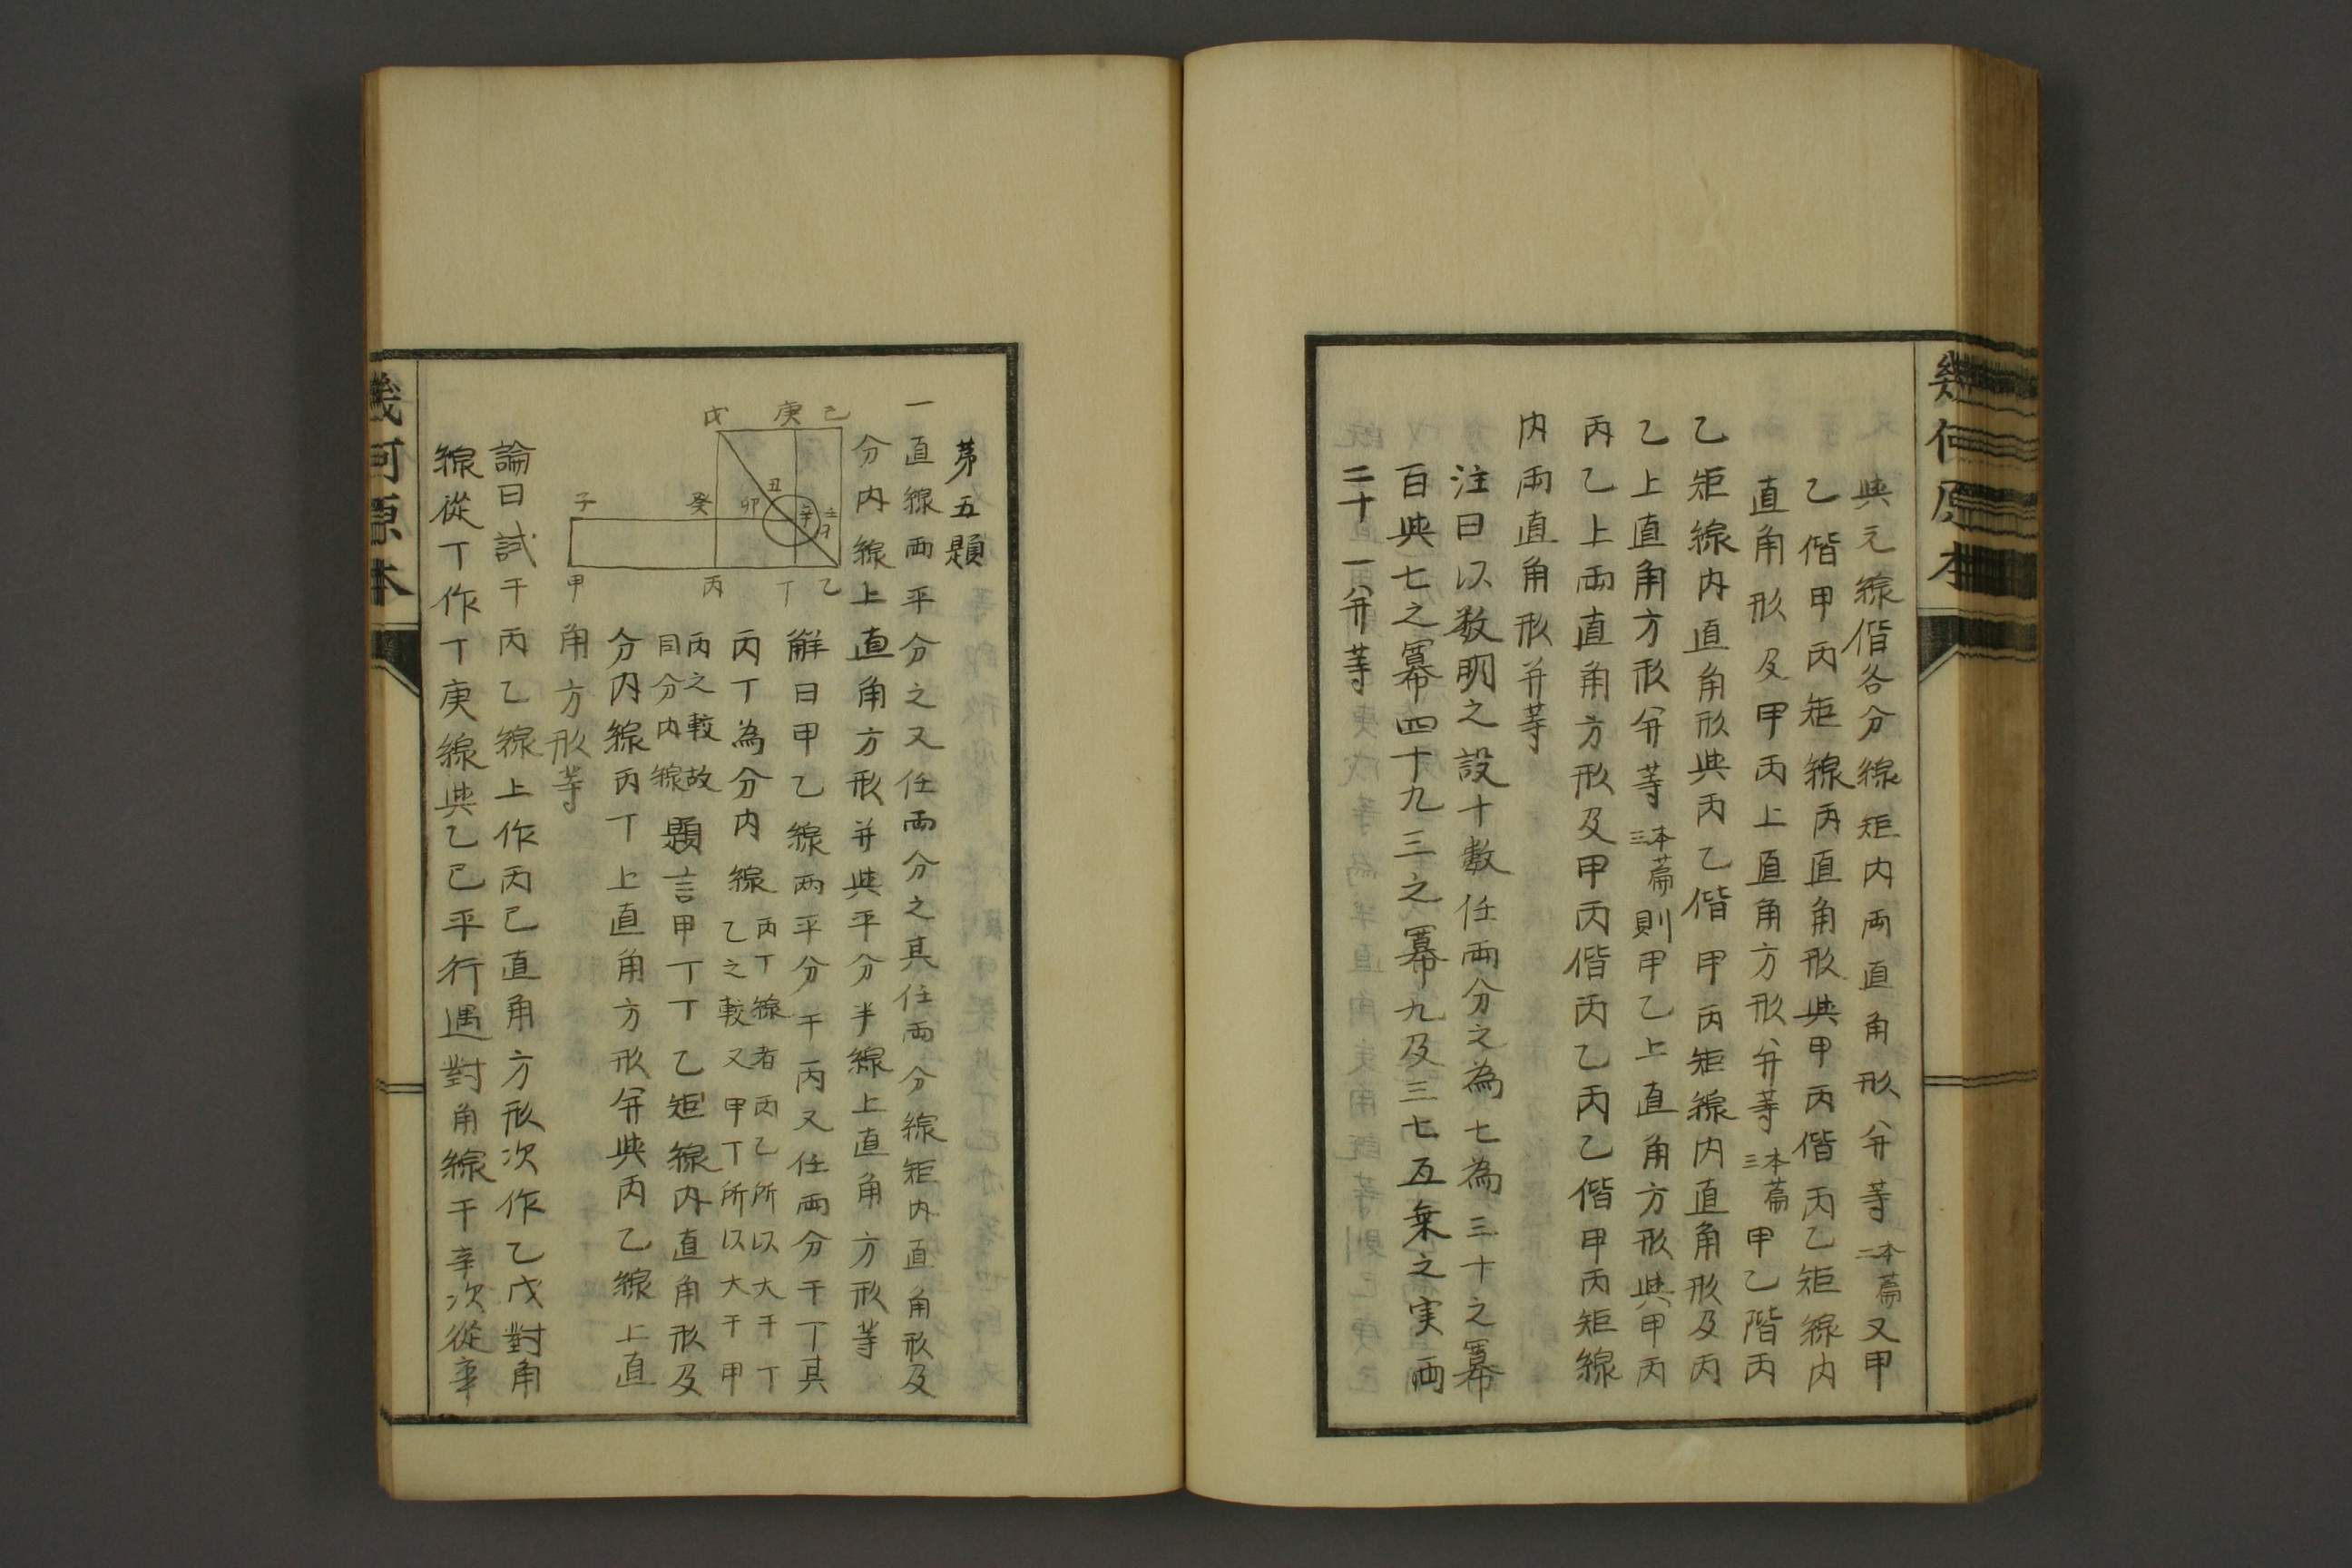 幾何原本
與元線偕各分線矩内両直角形并等 本篇二 又甲
乙偕甲丙矩線丙直角形與甲丙偕丙乙矩線内
直角形及甲丙上直角方形并等 本篇三 甲乙階丙
乙矩線内直角形與丙乙偕甲丙矩線内直角形及丙
乙上直角方形并等 本篇三 則甲乙上直角方形與甲丙
丙乙上両直角方形及甲丙偕丙乙丙乙偕甲丙矩線
内両直角形并等
注曰以数明之設十數任両分之為七為三十之冪
百與七之冪四十九三之冪九及三七互乗之実両
二十一并等
第五題
一直線両平分之又任両分之其任両分線矩内直角形及
分内線上直角方形并與平分半線上直角方形等
己
庚
戊
丑
卯
癸
子
辛
壬
乙
丁
丙
甲
解曰甲乙線両平分于丙又任両分于丁其
丙丁為分内線 丙丁線者丙乙所以大于丁
乙之較又甲丁所以大于甲
丙之較故
曰分内線 題言甲丁丁乙矩線内直角形及
分内線丙丁上直角方形并與丙乙線上直
角方形等
論曰試于丙乙線上作丙己直角方形次作乙戊對角
線從丁作丁庚線與乙己平行遇對角線于辛次從辛
幾何原本